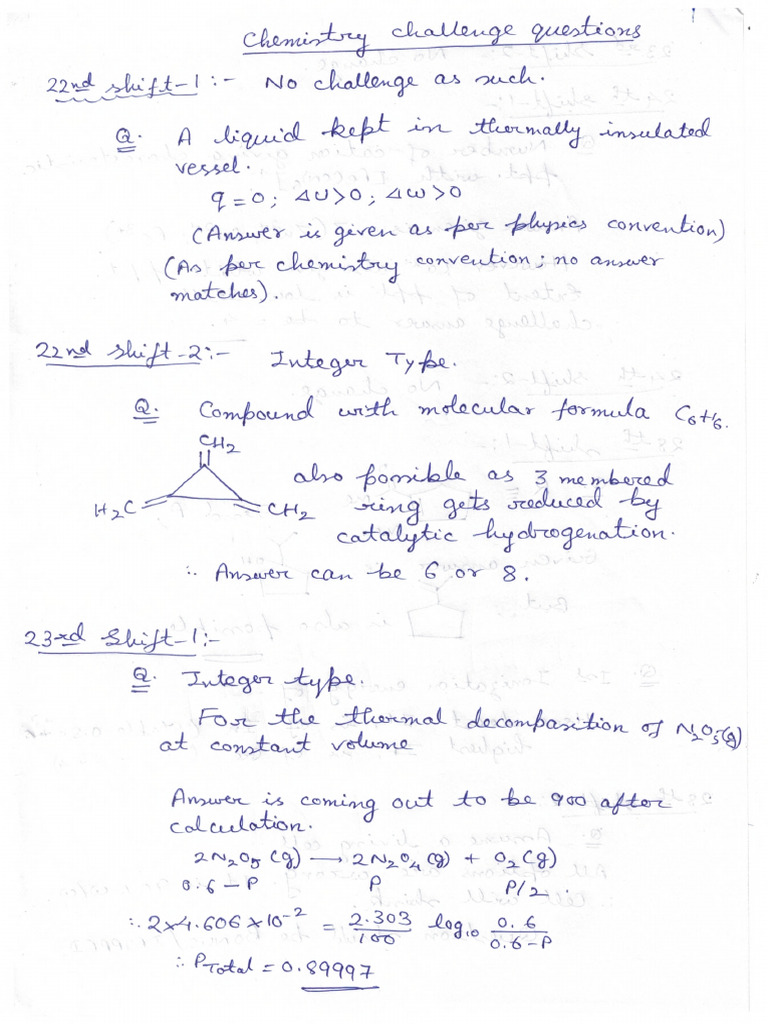 1
Chemistry challenge questions
22nd shift-1 :- No challenge as such.
Q. A liquid kept in thermally insulated
vessel.
q = 0 ; ΔU>0 ; ΔW>0
(Answer is given as per physics convention)
(As per chemistry convention ; no answer
matches).
22nd shift-2 :- Integer Type.
Q. Compound with molecular formula C6H6.
CH2
also possible as 3 membered
H2C CH2 ring gets reduced by
catalytic hydrogenation.
∴ Answer can be 6 or 8.
23rd Shift-1 :-
Q. Integer type.
For the thermal decomposition of N2O5(g)
at constant volume
Answer is coming out to be 900 after
calculation.
2N2O5 (g) ⟶ 2N2O4 (g) + O2 (g)
0.6-P P P/2
∴ 2×4.606×10-2 = 2.303/100 log10 0.6/0.6-P
∴ PTotal = 0.89997